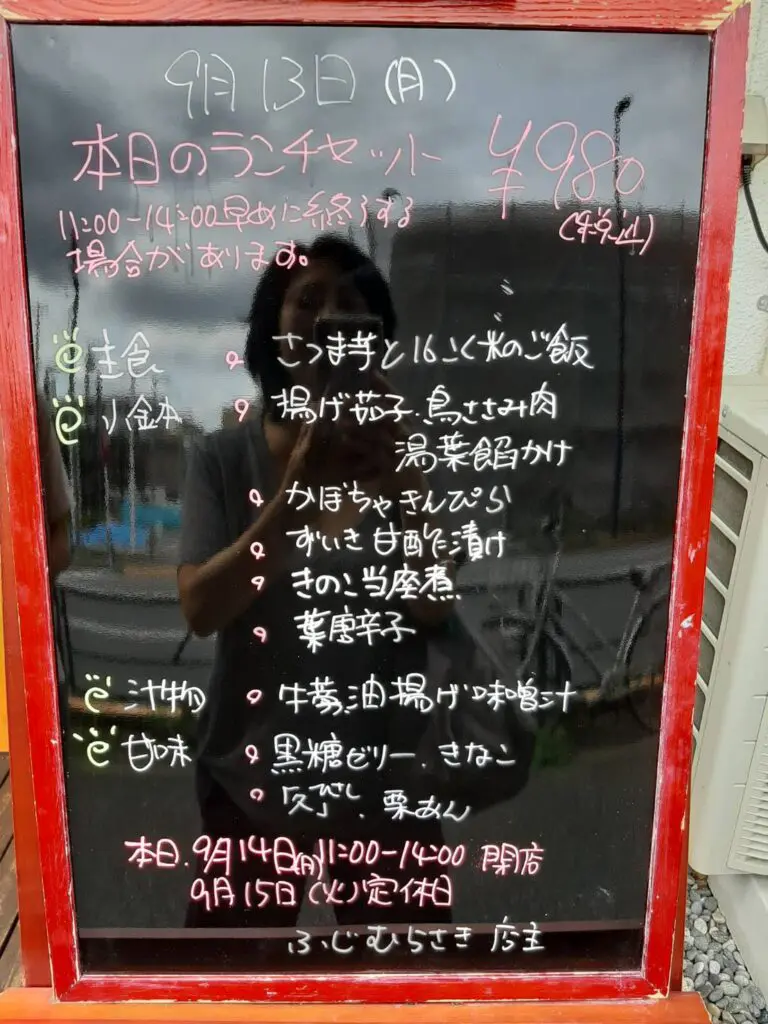 9月13日(月)
本日のランチセット ¥980
(税込)
11:00-14:00早めに終了する
場合があります。
主食 さつま芋と16ごく米のご飯
小鉢 揚げ茄子.鳥ささみ肉
湯葉餡かけ
かぼちゃきんぴら
ずいき甘酢漬け
きのこ当座煮
葉唐辛子
汁物 牛蒡油揚げ味噌汁
甘味 黒糖ゼリー.きなこ
栗あん
本日.9月14日(月)11:00-14:00 閉店
9月15日(火)定休日
ふじむらさき 店主